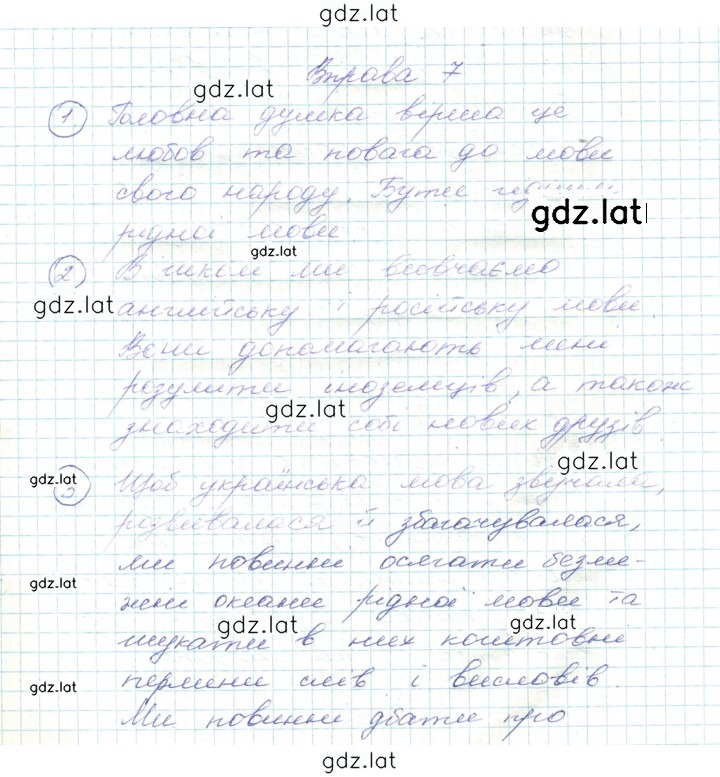 gdz.lat
Вправа 7
gdz.lat
1 Головна думка вірша це
любов та повага до мови
свого народу. Бути
gdz.lat
рідної мови
gdz.lat
2 В школі ми вивчаємо
gdz.lat
англійську і російську мови.
Вони допомагають мені
розуміти іноземців, а також
gdz.lat
знаходити собі нових друзів.
gdz.lat
gdz.lat
3 Щоб українська мова звучала,
розвивалася й збагачувалася,
ми повинні осягати безме-
gdz.lat
жні океани рідної мови та
gdz.lat gdz.lat
шукати в них коштовні
перлини слів і висловів.
gdz.lat
Ми повинні дбати про
gdz.lat